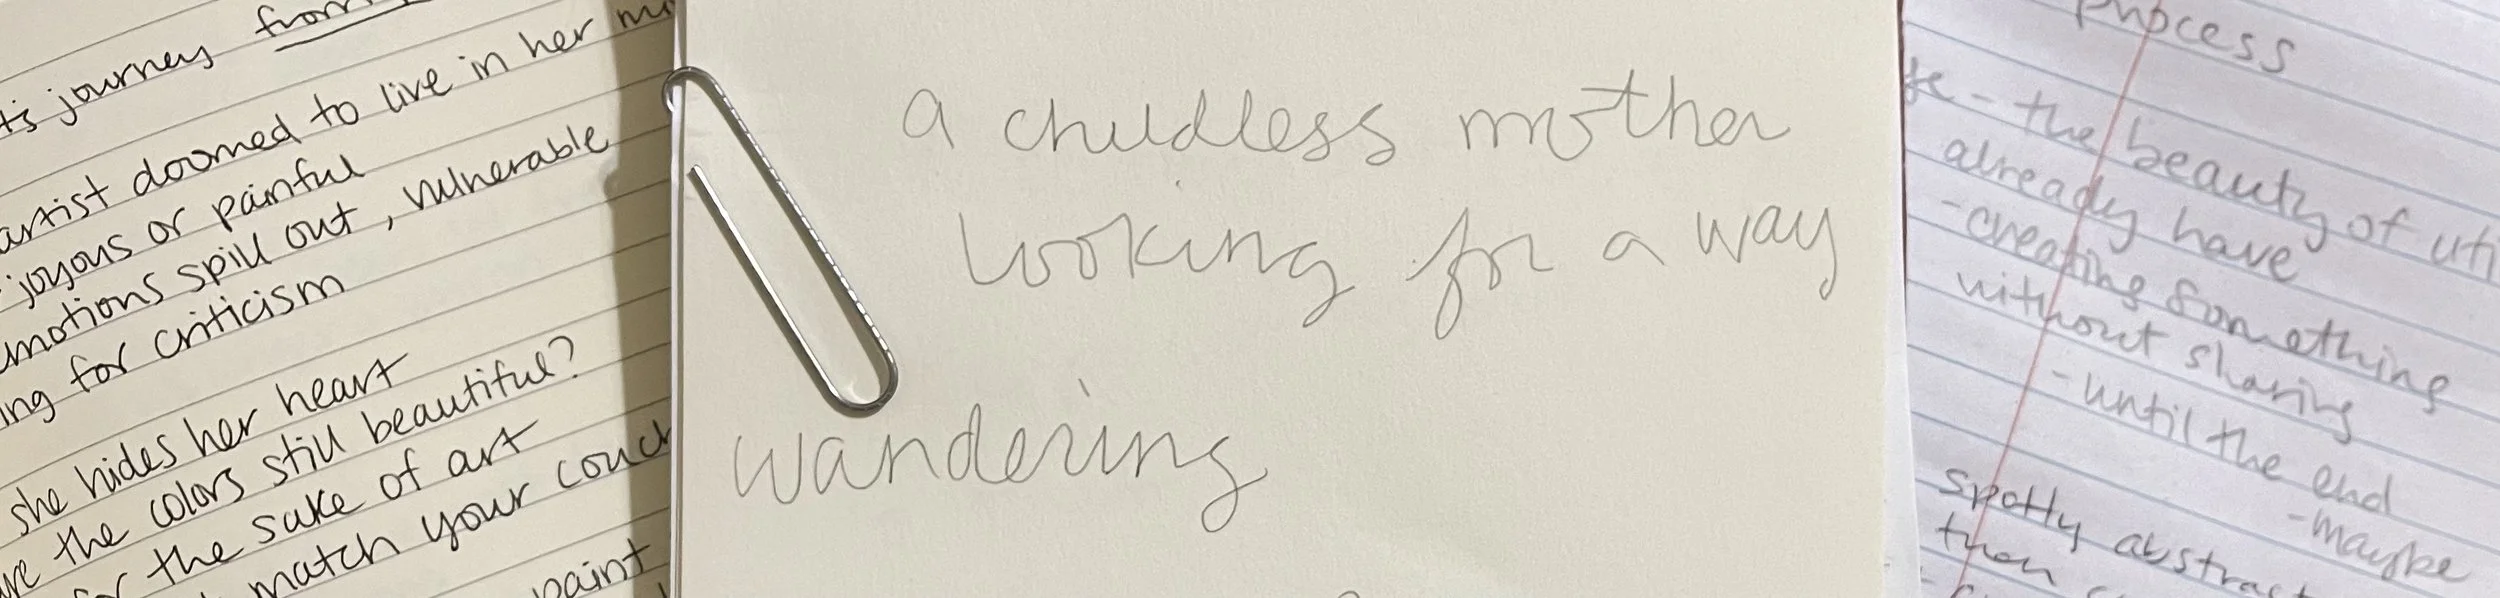 journey from
artist doomed to live in her
joyous or painful
emotions spill out, vulnerable
for criticism
she hides her heart
the colors still beautiful?
for the sake of art
match your couch
paint
a childless mother
looking for a way
wandering
process
- the beauty of
already have
- creating something
without sharing
- until the end
- maybe
spotty abstract
then